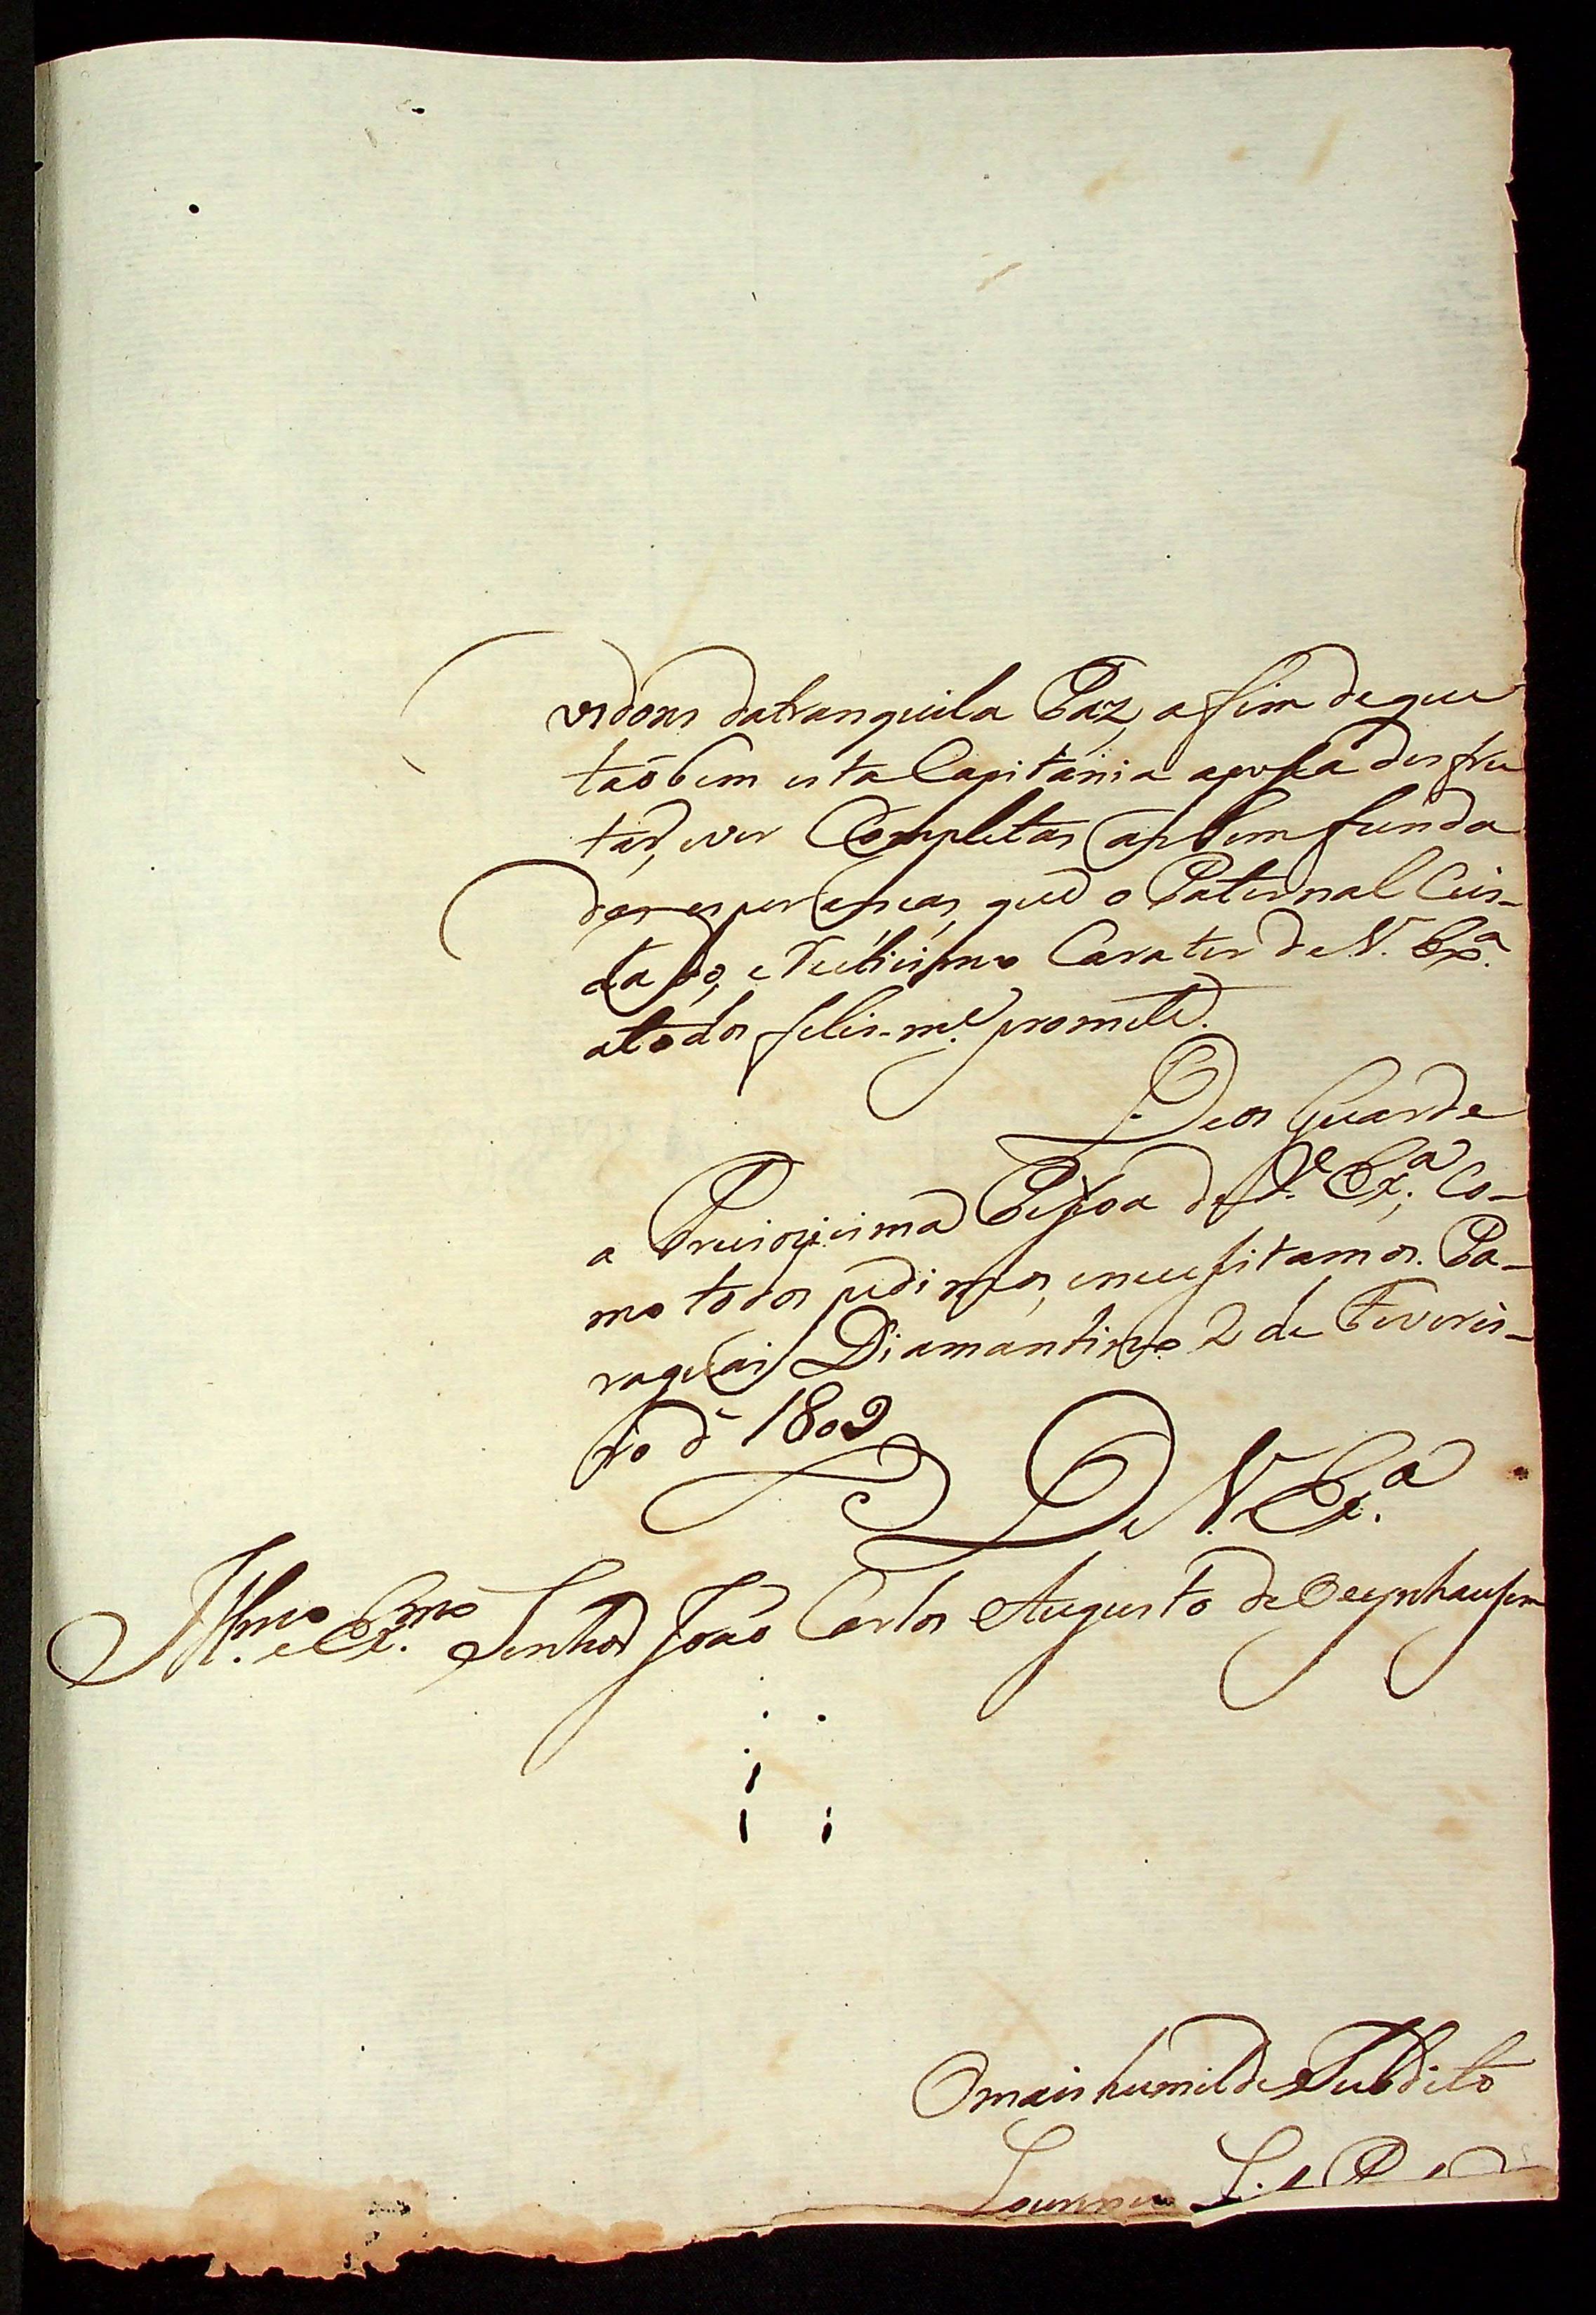 vedoras datranquila Paz, a fim deque
taõbem esta Capitánia aposâa desfru
tar, ever Completas as bem funda
das esperansas, que o Paternal Cui-
dado, e Rectissimo Carater de V. Ex.ª
atodos felis-m.e promete.
Deos Guarde
a Preciozissima Pessoa de V.e Ex.ª, Co-
mo todos pedimos, enecessitamos. Pa-
raguai Diamantino 2 de Feverei-
ro d' 1809
De V. Ex.ª
Ill.mo e Ex.mo Senhor João Carlos Augusto de Oeynhausem
Omais humilde Subdito
Lourenço